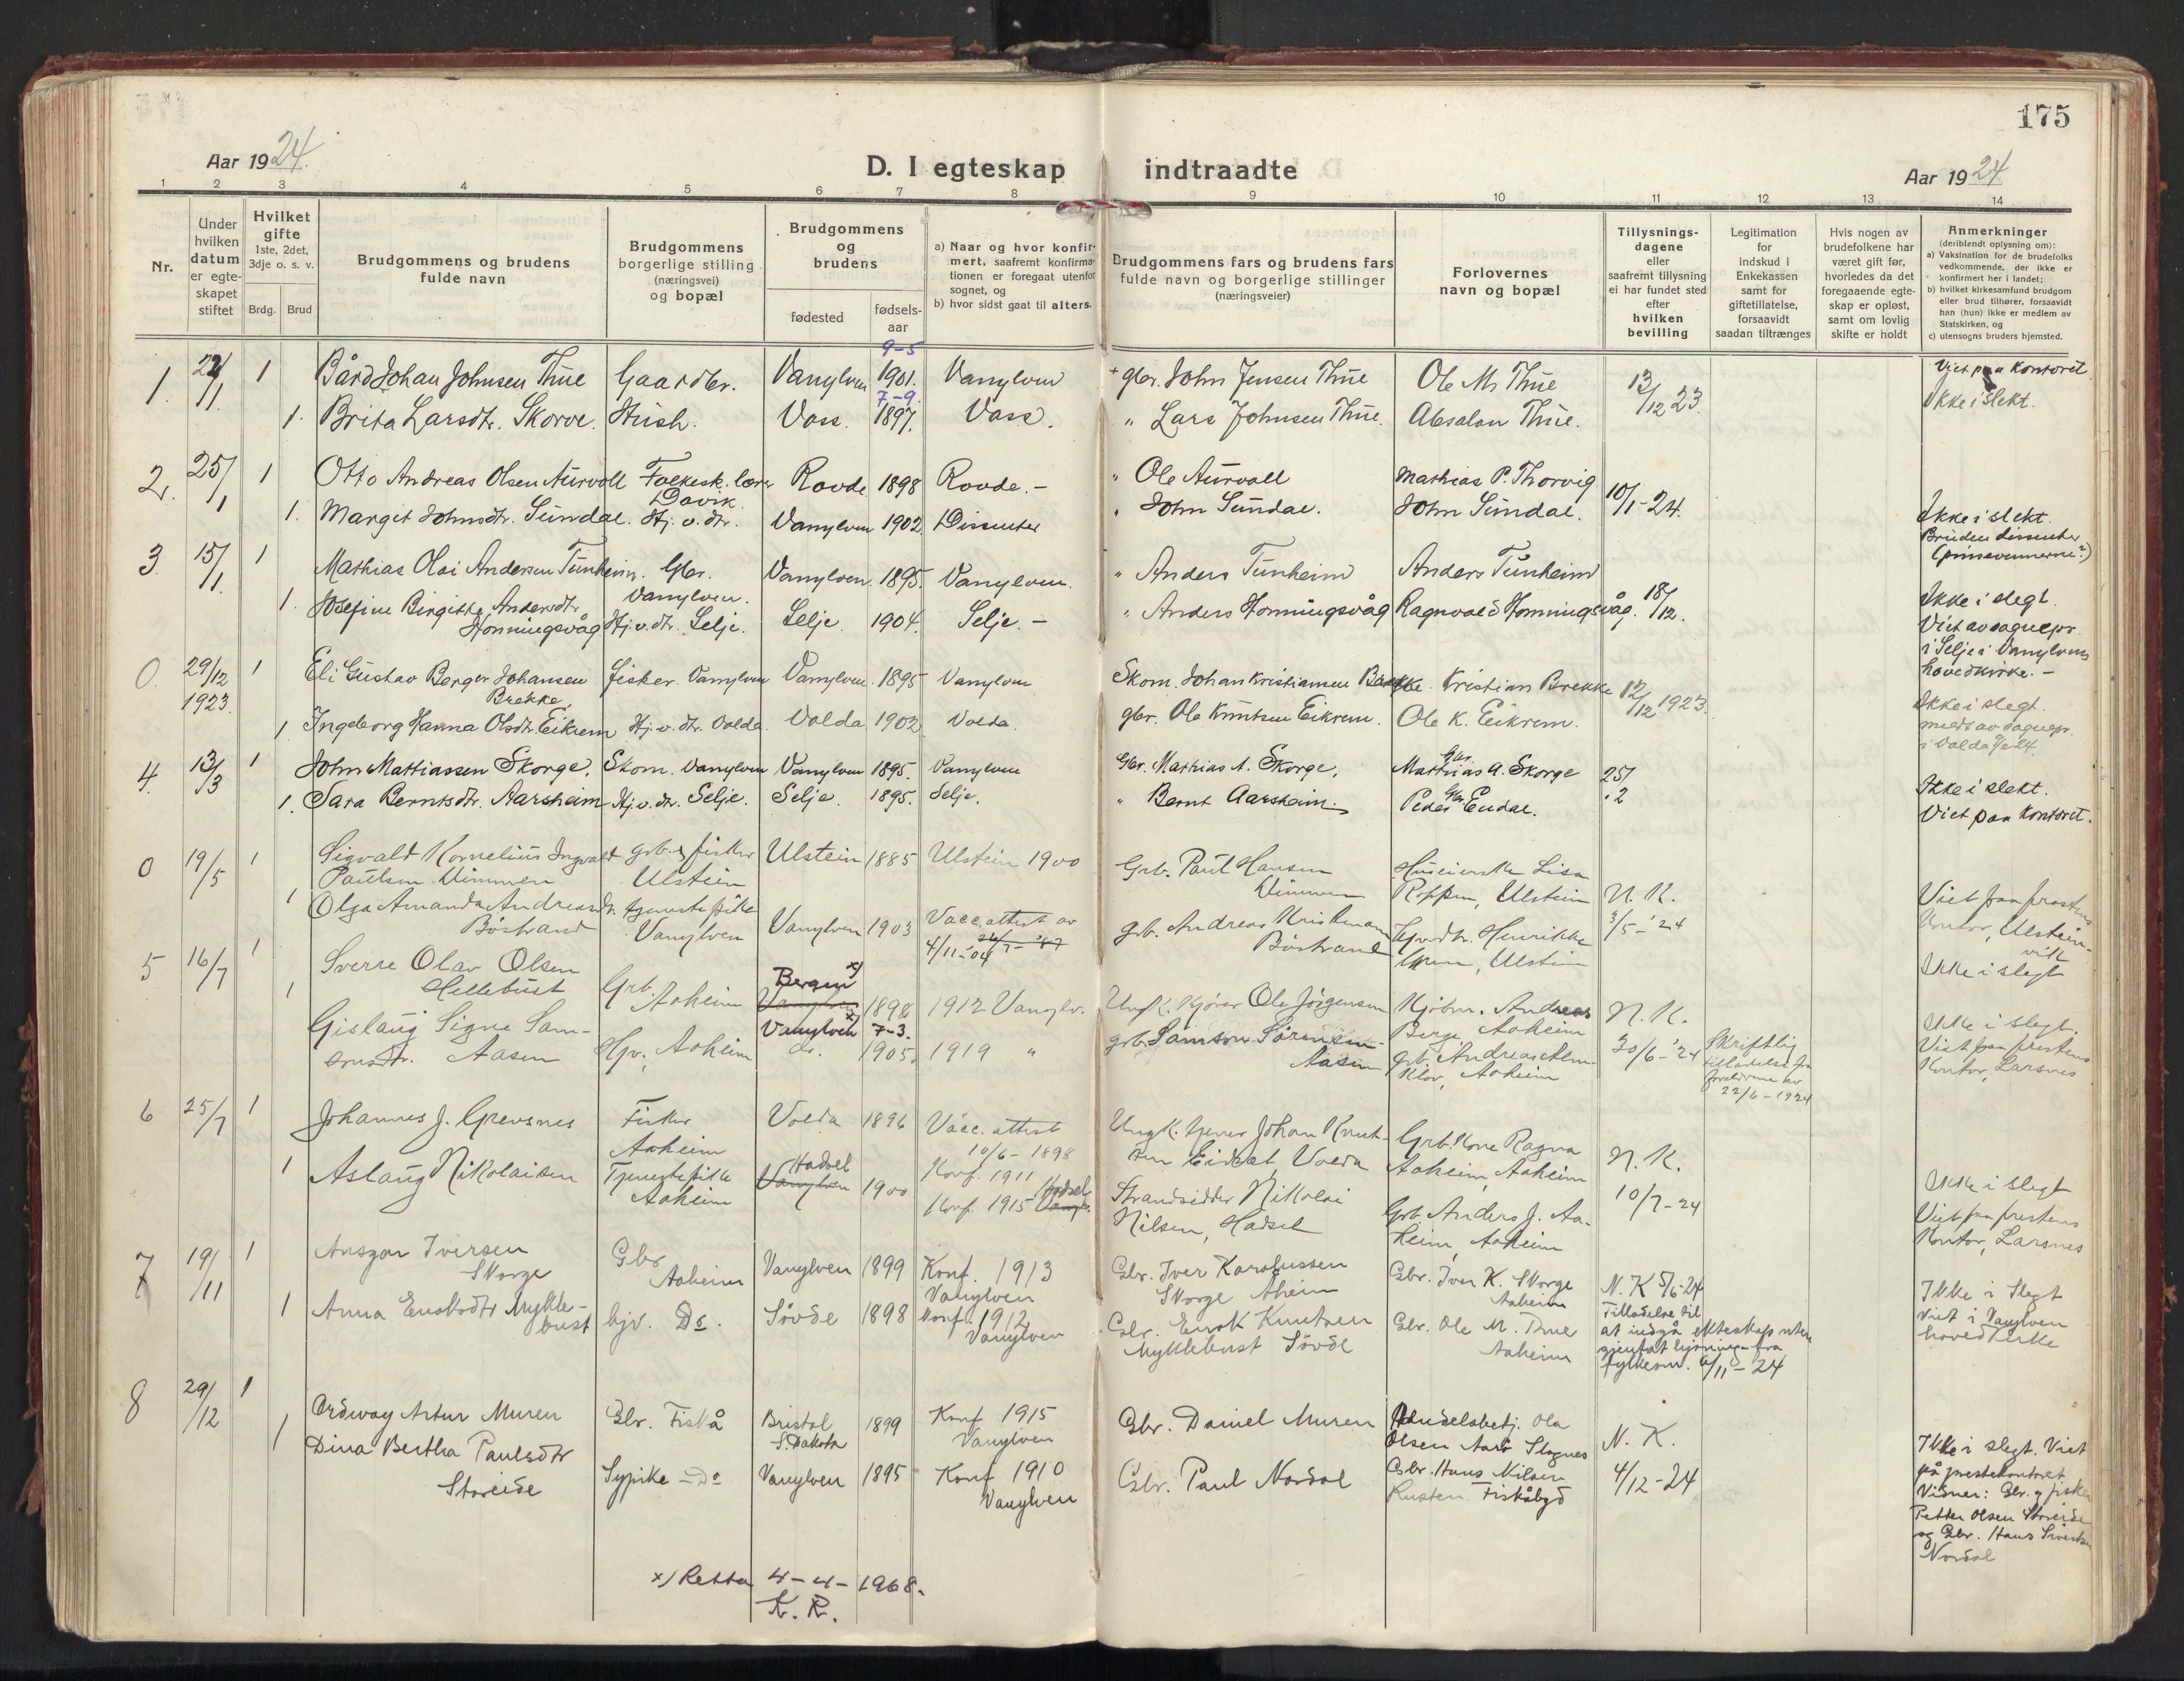 175
Aar 1924.
D. I egteskap indtraadte
Aar 1924
1 2 3 4 5 6 7 8 9 10 11 12 13 14
Nr.
Under hvilken datum er egteskapet stiftet
Hvilket gifte 1ste, 2det, 3dje o. s. v.
Brdg. Brud
Brudgommens og brudens fulde navn
Brudgommens borgerlige stilling (næringsvei) og bopæl
Brudgommens og brudens
fødested
fødsels-aar
a) Naar og hvor konfirmert, saafremt konfirmationen er foregaat utenfor sognet, og
b) hvor sidst gaat til alters.
Brudgommens fars og brudens fars fulde navn og borgerlige stillinger (næringsveier)
Forlovernes navn og bopæl
Tillysningsdagene eller saafremt tillysning ei har fundet sted efter hvilken bevilling
Legitimation for indskud i Enkekassen samt for giftetillatelse, forsaavidt saadan tiltrænges
Hvis nogen av brudefolkene har været gift før, hvorledes da det foregaaende egteskap er opløst, samt om lovlig skifte er holdt
Anmerkninger (deriblandt oplysning om):
a) Vaksination for de brudefolks vedkommende, der ikke er konfirmert her i landet;
b) hvilket kirkesamfund brudgom eller brud tilhører, forsaavidt han (hun) ikke er medlem av Statskirken, og
c) utensogns bruders hjemsted.
1. 1 Bård Johan Johnsen Thue Gaardbr. Vanylven 9-5 1901. Vanylven + gbr. John Jensen Thue Ole M. Thue 13/12 23. Viet paa kontoret
1. Brita Larsdtr. Skorve. Hush. Voss. 7-9 1897. Voss. " Lars Johnsen Thue. Absalon Thue. Ikke i slekt.
2. 25/1 1 Otto Andreas Olsen Aurvoll Folkesk. lærer Davik Rovde 1898 Rovde.- " Ole Aurvoll Mathias P. Thorvig 10/1-24.
1. Margit Johnsdtr. Sundal. Hj. v. dtr. Vanylven 1902 Dissenter " John Sundal. John Sundal. Ikke i slekt.
Bruden dissenter
3. 15/1. 1 Mathias Olai Andersen Tunheim. Gbr. Vanylven. Vanylven. 1895. Vanylven. " Anders Tunheim Anders Tunheim 18/12.
1. Josefine Birgitte Andersdtr Honningsvåg Hj. v. dtr. Selje. Selje 1904. Selje.- " Anders Honningsvåg Ragnvald Honningsvåg. Ikke i slegt.
Viet av sognepr. i Selje i Vanylvens hovedkirke.-
0. 29/12 1923. 1 Eli Gustav Berger Johansen Brekke, fisker. Vanylven Vanylven. 1895 Vanylven Skom. Johan Kristiansen Brekke. Kristian Brekke 12/12 1923.
1 Ingeborg Hanna Olsdtr. Eikrem Hj. v. dtr. Volda. Volda 1902 Volda. gbr. Ole Knutsen Eikrem. Ole K. Eikrem. Ikke i slegt.
4. 13/3 1 John Mattiassen Skorge. Skom. Vanylven Vanylven 1895. Vanylven Gbr. Mathias A. Skorge. Gbr. Mathias A. Skorge 25/2
1. Sara Berntsdtr. Aarsheim Hj. v. dtr. Selje. Selje. 1895. Selje. " Bernt Aarsheim. Peder Gbr. Eidal. Ikke i slekt.
Viet paa kontoret.
0 19/5 1 Sigvald Kornelius Ingvald Paulsen Dimmen grb. & fisker Ulstein Ulstein 1885 Ulstein 1900 Grb. Paul Hansen Dimmen Huseierske Lisa Roppen, Ulstein N. K. 3/5-'24
1 Olga Amanda Andreasdr. Böstrand tjenestepike Vanylven Vanylven 1903 Vacc. attest av 4/11-04 grb. Andreas Böstrand Henrikke, Ulstein
Viet paa prestens kontor, Ulsteinvik
Ikke i slegt
5 16/7 1 Sverre Olav Olsen Hellebust Grb. Aaheim Bergen x) Vanylven 1898 1912 Vanylv. Ole Jörgensen Andreas Berge, Aaheim N. K. 30/6-'24
1 Gislaug Signe Samsonsdr. Aasen Hjv. Aaheim Vanylven x) do. 7-3. 1905. 1919 " grb. Samson Sörensen Aasen Aaheim
Skriftlig tilladelse fra foreldrene av 22/6-1924
Ikke i slegt.
Viet paa prestens kontor, Larsnes
6 25/7 1 Johannes J. Grevsnes Fisker Aaheim Volda 1896 Vacc. attest 10/6-1898 Konf. 1911 Johan Knutsen Eidset, Volda Grb. kone Ragna Aaheim, Aaheim N. K. 10/7-24
1 Aslaug Nikolaisen Tjenestepike Aaheim Hadsel Vanylven 1900 Konf. 1915 Hadsel Vanylv. Strandsidder Nikolai Nilsen, Hadsel Grb. Anders J. Aaheim, Aaheim
Ikke i slegt
Viet paa prestens kontor, Larsnes
7 19/11 1 Ansgar Iversen Skorge Gbr. Aaheim Vanylven 1899 Konf. 1913 Vanylven Gbr. Iver Karolussen Skorge Åheim Gbr. Iver K. Skorge Aaheim N. K 5/6-24
1 Anna Enoksdtr Myklebust hjv. Do. Sövde 1898 Konf. 1912 Vanylven Gbr. Enok Knutsen Myklebust Sövde Gbr. Ole M. Thue Aaheim Tilladelse til at indgå ekteskap uten gjentat lysning fra fylkesm. 6/11-24
Ikke i Slegt
Viet i Vanylven hovedkirke
8 29/12 1 Ordway Artur Muren Gbr. Fiskå Bristol S. Dakota 1899 Konf 1915 Vanylven Gbr. Daniel Muren Handelsbetj. Ola Olsen Slagnes N. K. 4/12-24
1 Dina Bertha Paulsdtr Storeide Sypike - Do Vanylven 1895 Konf 1910 Vanylven Gbr. Paul Nordal Gbr. Hans Nilsen Rusten Fiskåbygd
Ikke i slegt. Viet på prestekontoret. Vidner: Gbr. og fisker Petter Olsen Storeide og Gbr. Hans Sivertsen Nordal
x) Retta 4-4-1968.
K. R.